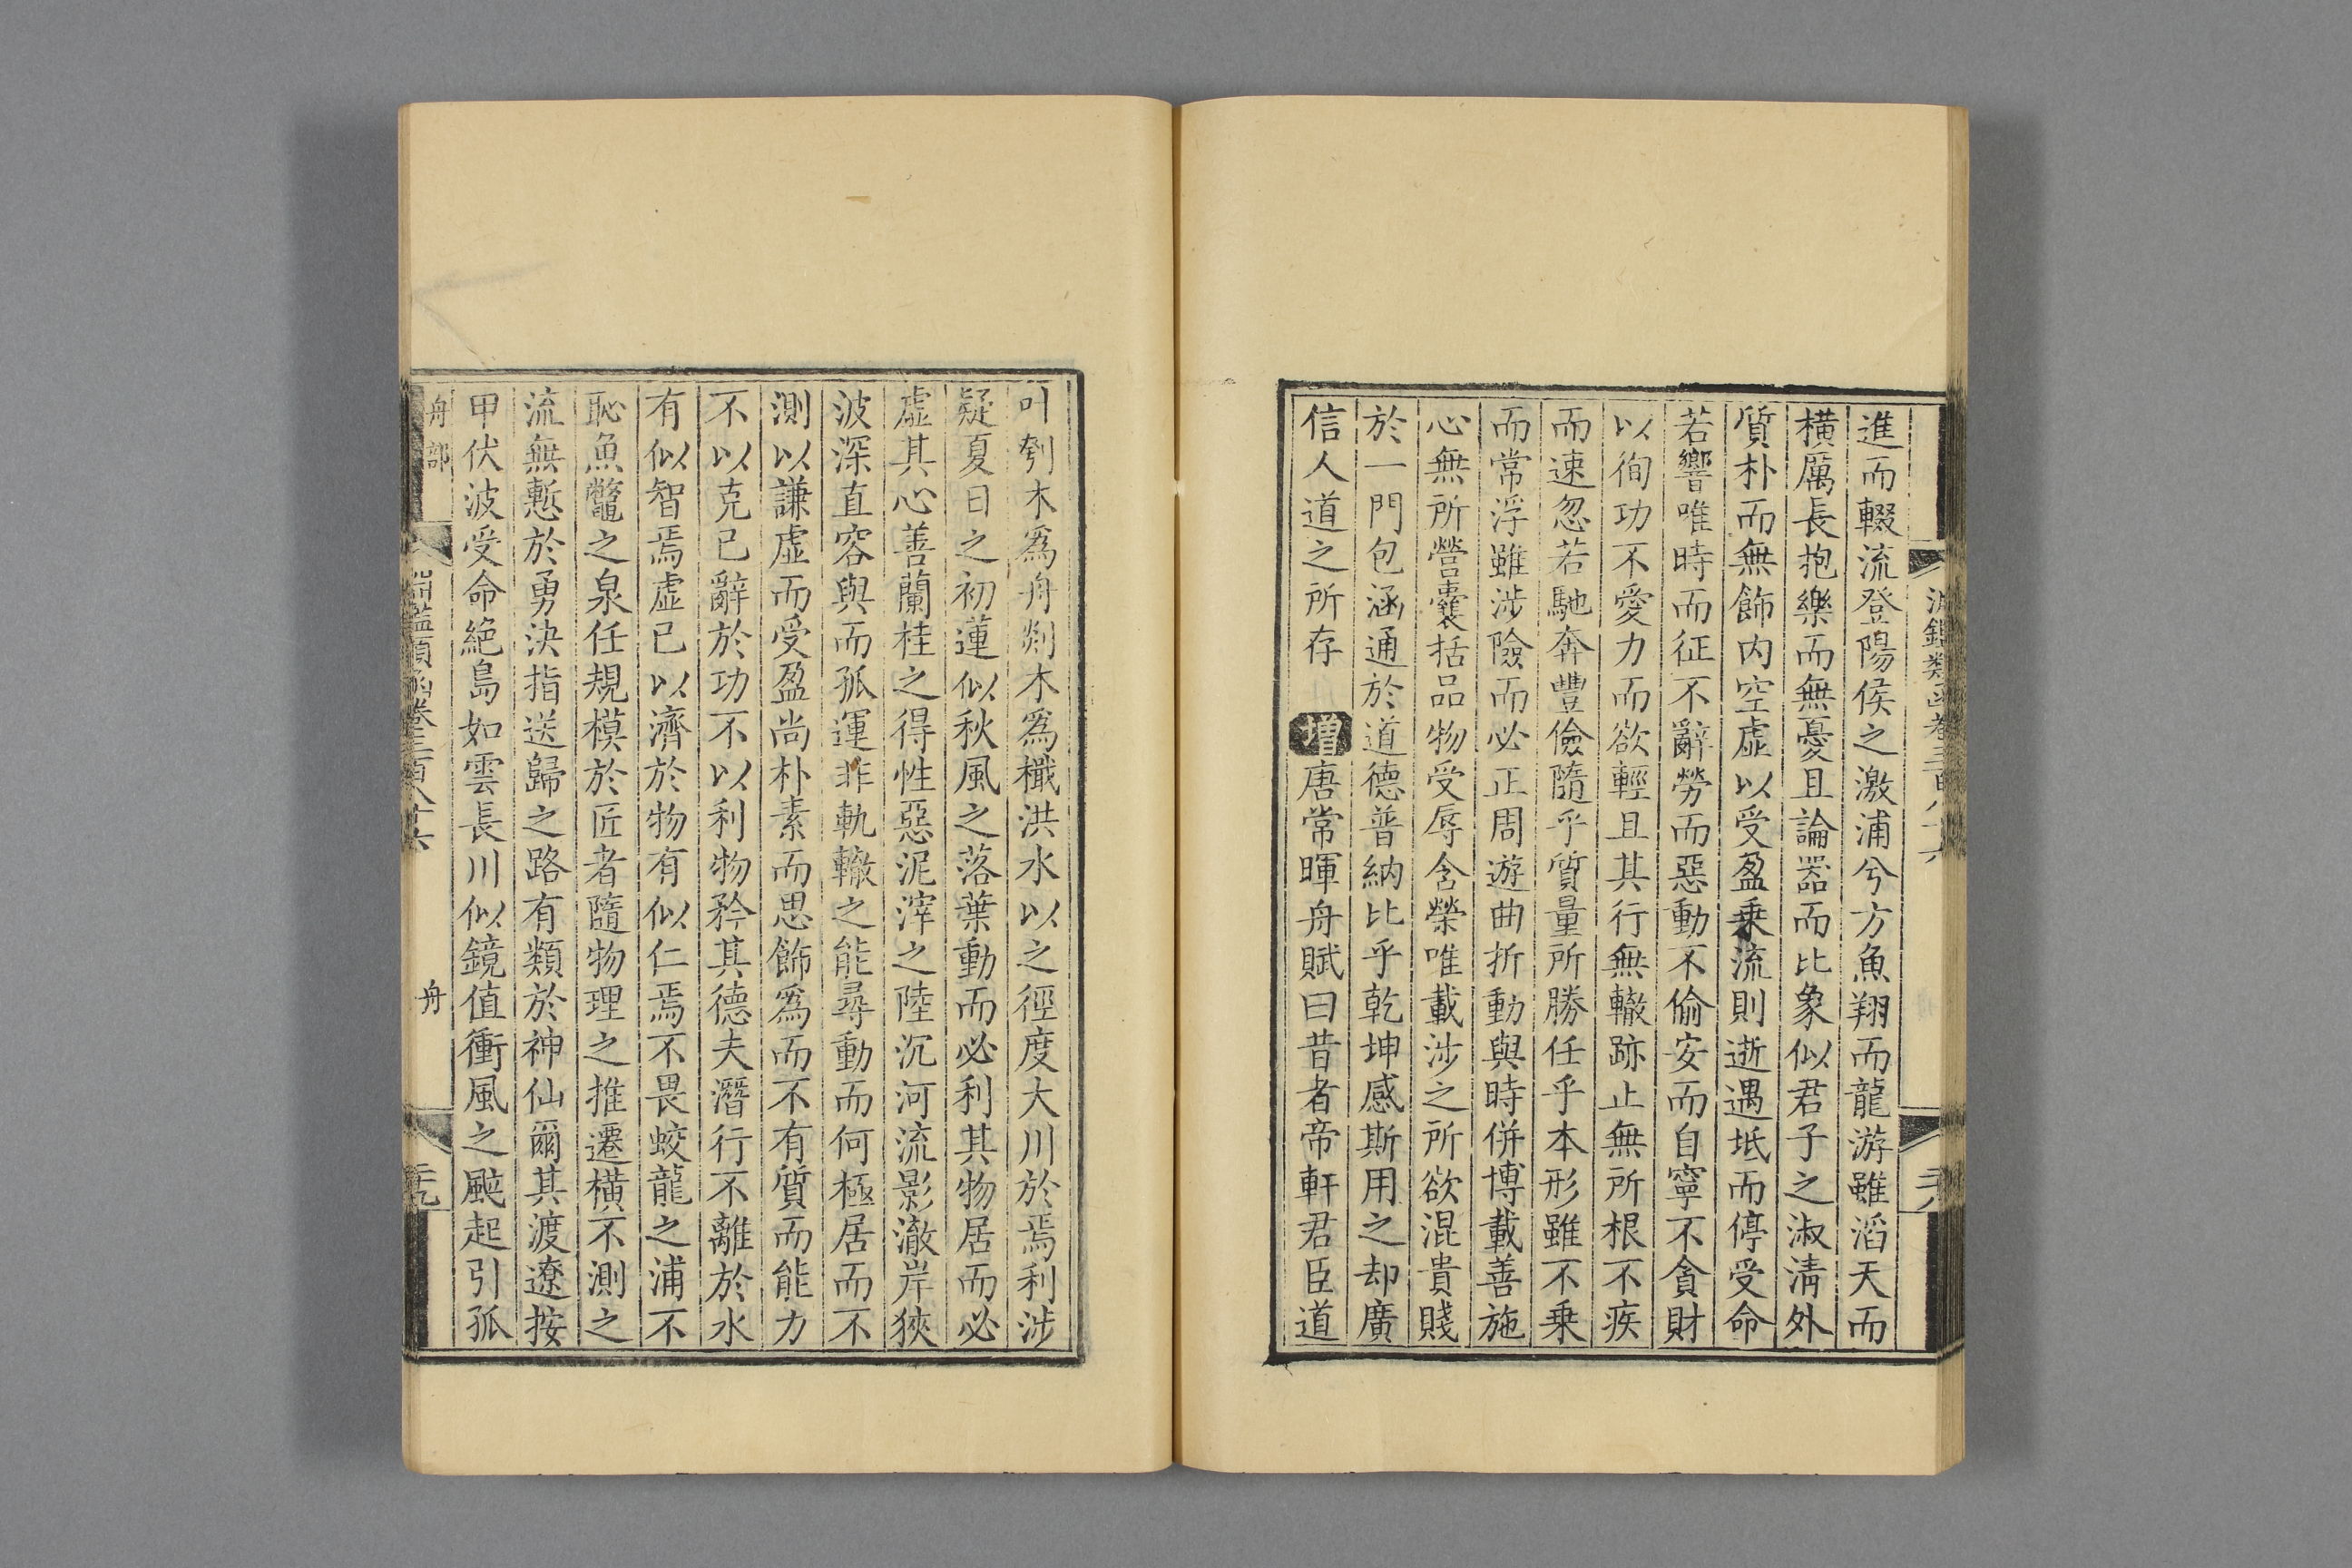 進而輟流登陽侯之激浦兮方魚翔而龍游雖滔天而
橫厲長抱樂而無憂且論器而比象似君子之淑清外
質朴而無飾内空虛以受盈乗流則逝遇坻而停受命
若響唯時而征不辭勞而惡動不偷安而自寧不貪財
以徇功不愛力而欲輕且其行無轍跡止無所根不疾
而速忽若馳奔豐儉隨乎質量所勝任乎本形雖不乗
而常浮雖涉險而必正周遊曲折動與時併博載善施
心無所營囊括品物受辱含榮唯載涉之所欲混貴賤
於一門包涵通於道德普納比乎乾坤感斯用之却廣
信人道之所存 增唐常暉舟賦曰昔者帝軒君臣道
叶刳木爲舟剡木爲檝洪水以之徑度大川於焉利涉
疑夏日之初蓮似秋風之落葉動而必利其物居而必
虛其心善蘭桂之得性惡泥滓之陸沉河流影澈岸狹
波深直容與而孤運非軌轍之能尋動而何極居而不
測以謙虛而受盈尚朴素而思飾爲而不有質而能力
不以克已辭於功不以利物矜其德夫潛行不離於水
有似智焉虛已以濟於物有似仁焉不畏蛟龍之浦不
恥魚鼈之泉任規模於匠者隨物理之推遷橫不測之
流無慙於勇決指送歸之路有類於神仙爾其渡遼按
甲伏波受命絕島如雲長川似鏡值衝風之颰起引孤
舟部
淵鑑類函卷三百八十六
舟
二十九